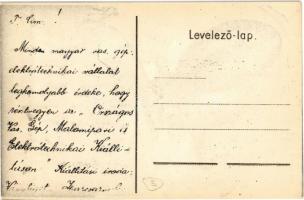 T. Cím!
Levelező-lap.
Minden magyar vas, gép,
elektrotechnikai vállalat
legkomolyabb érdeke, hogy
résztvegyen az "Országos
Vas, Gép, Malomipari és
Elektrotechnikai Kiállí-
táson" Kiállítási iroda: